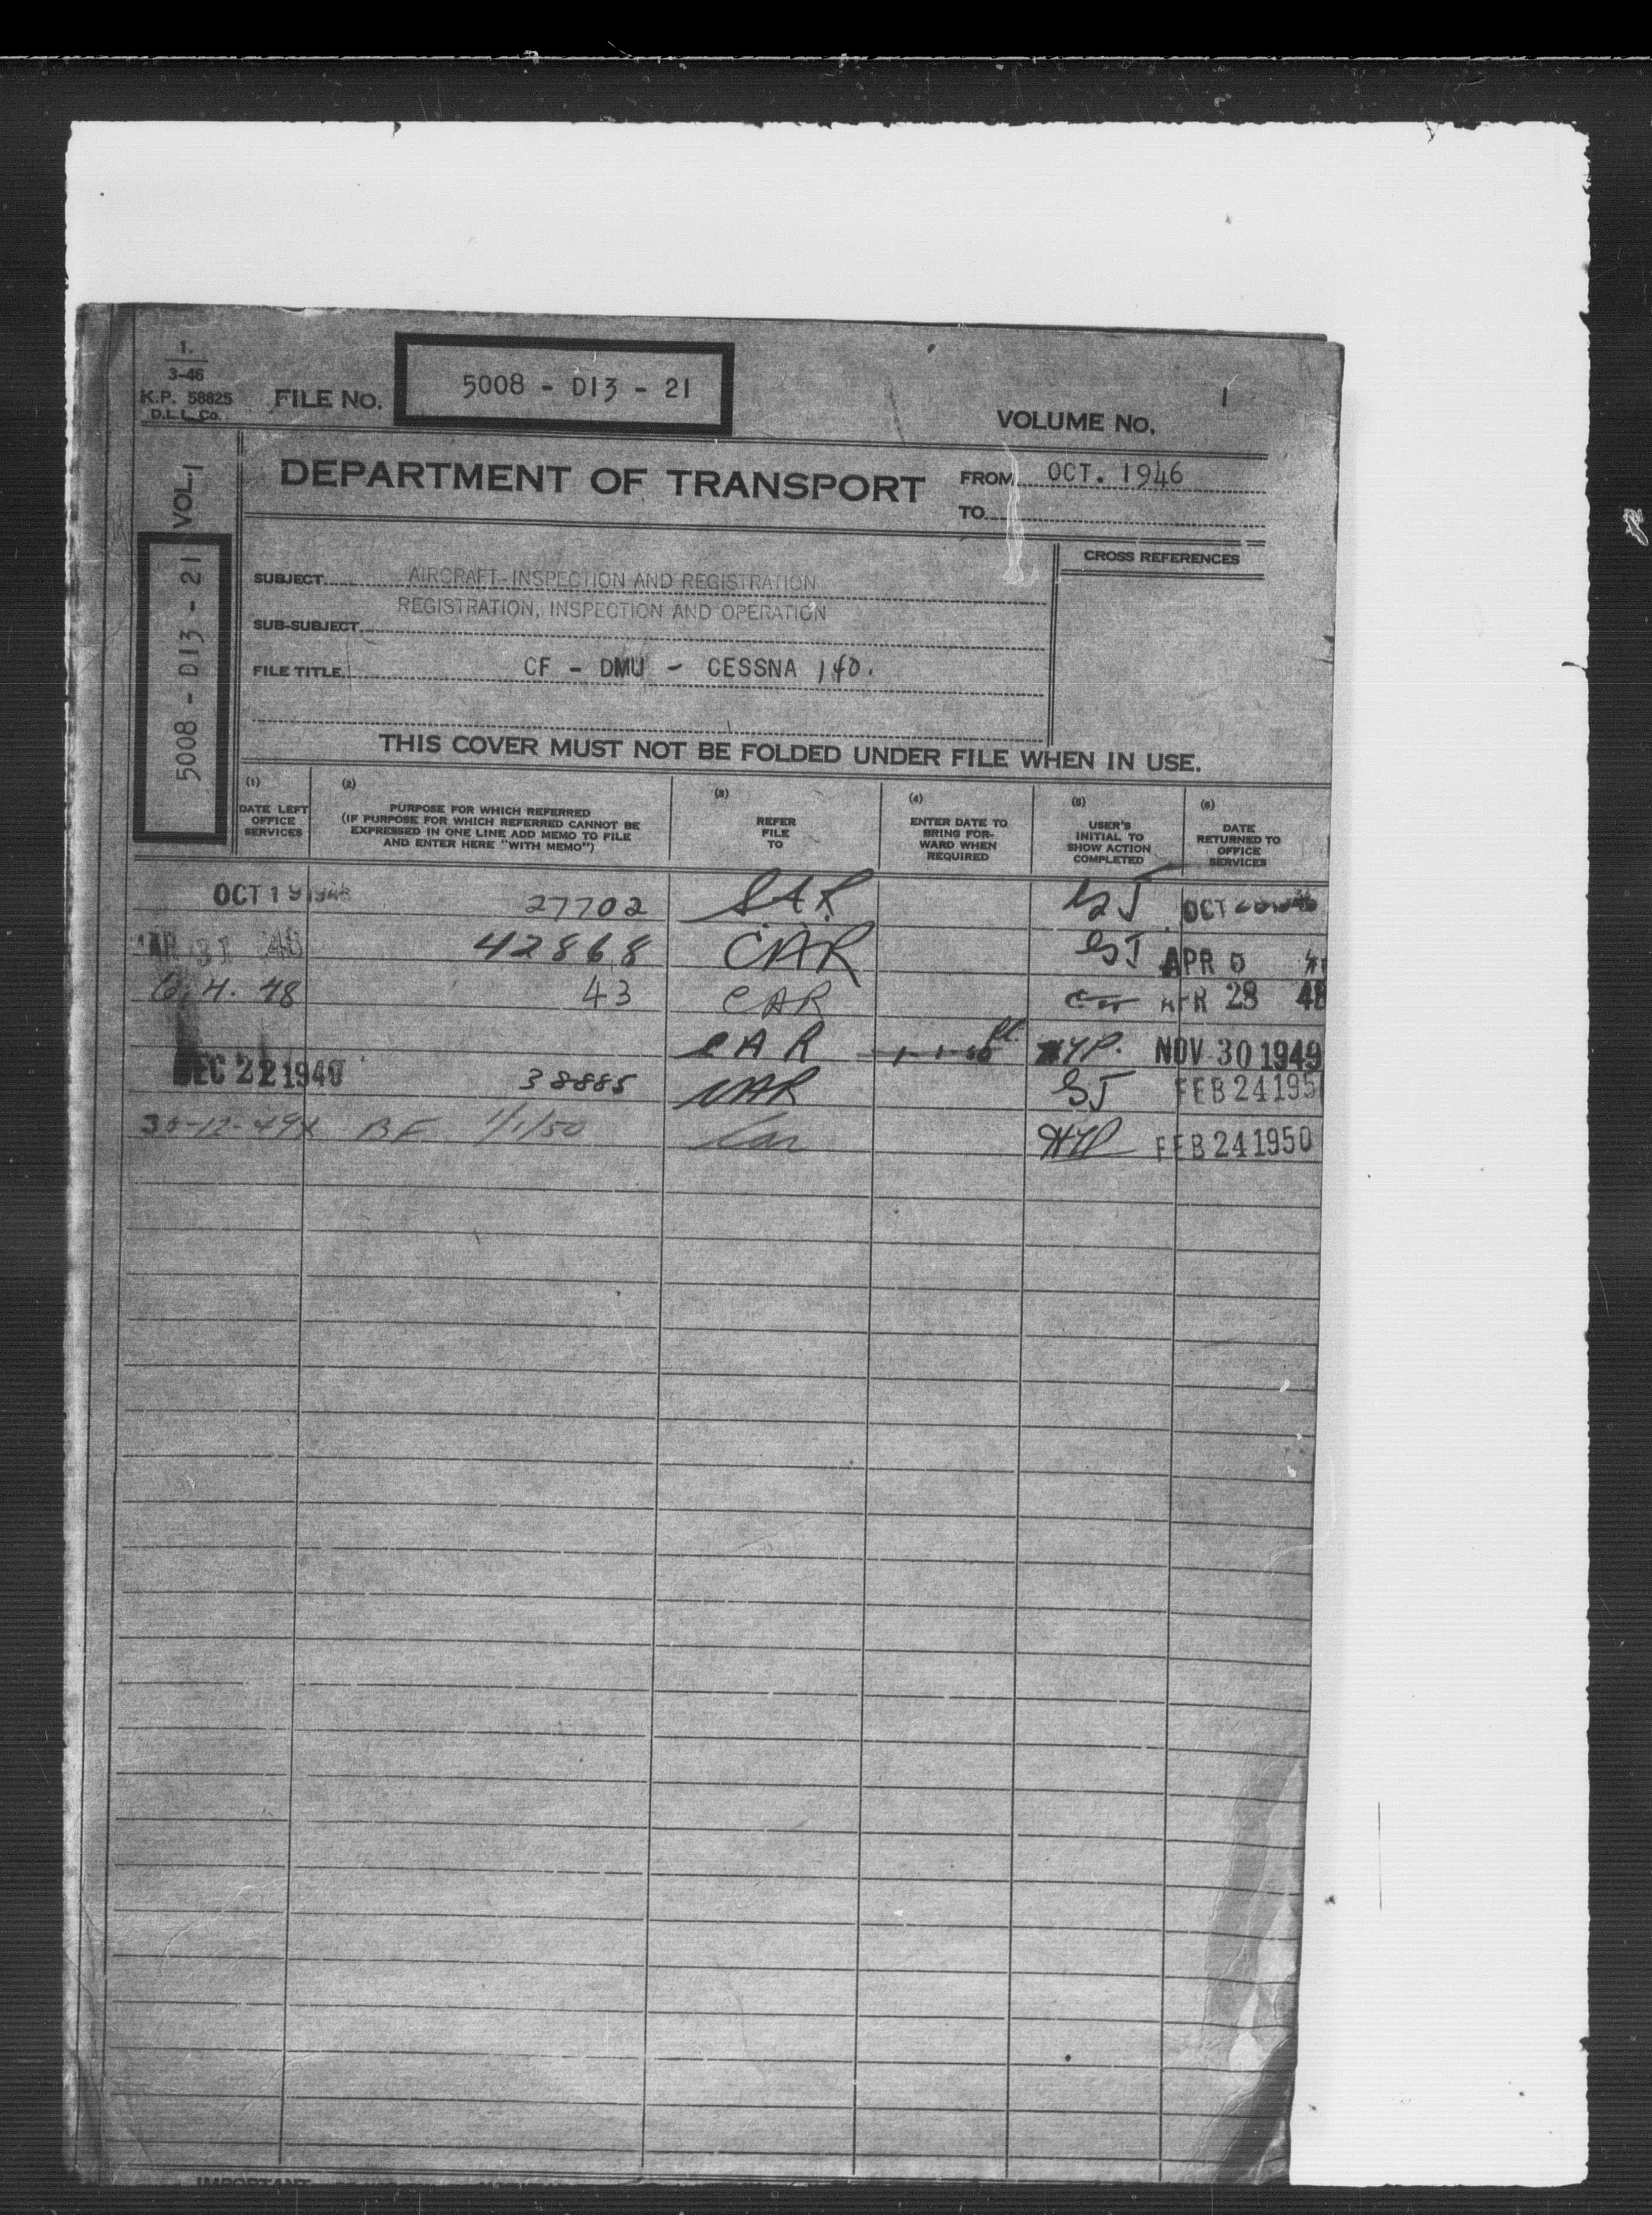 1.
3-46
K.P. 58825
D.L.L. Co.
FILE NO. 5008 - D13 - 21
VOLUME NO. 1
VOL. 1
5008 - D13 - 21
DEPARTMENT OF TRANSPORT
FROM OCT. 1946
TO
CROSS REFERENCES
SUBJECT AIRCRAFT-INSPECTION AND REGISTRATION
REGISTRATION, INSPECTION AND OPERATION
SUB-SUBJECT
FILE TITLE CF - DMU - CESSNA 140.
THIS COVER MUST NOT BE FOLDED UNDER FILE WHEN IN USE.
(1)
DATE LEFT
OFFICE
SERVICES
(2)
PURPOSE FOR WHICH REFERRED
(IF PURPOSE FOR WHICH REFERRED CANNOT BE
EXPRESSED IN ONE LINE ADD MEMO TO FILE
AND ENTER HERE "WITH MEMO")
(3)
REFER
FILE
TO
(4)
ENTER DATE TO
BRING FOR-
WARD WHEN
REQUIRED
(5)
USER'S
INITIAL TO
SHOW ACTION
COMPLETED
(6)
DATE
RETURNED TO
OFFICE
SERVICES
OCT 19 1946 27702 SAR OCT
31 48 42868 CAR APR
6.4.48 43 CAR APR 28 48
CAR NOV 30 1949
DEC 22 1949 38885 CAR FEB 24 195
30-12-49 BF 1/1/50 Car FEB 24 1950
IMPORTANT